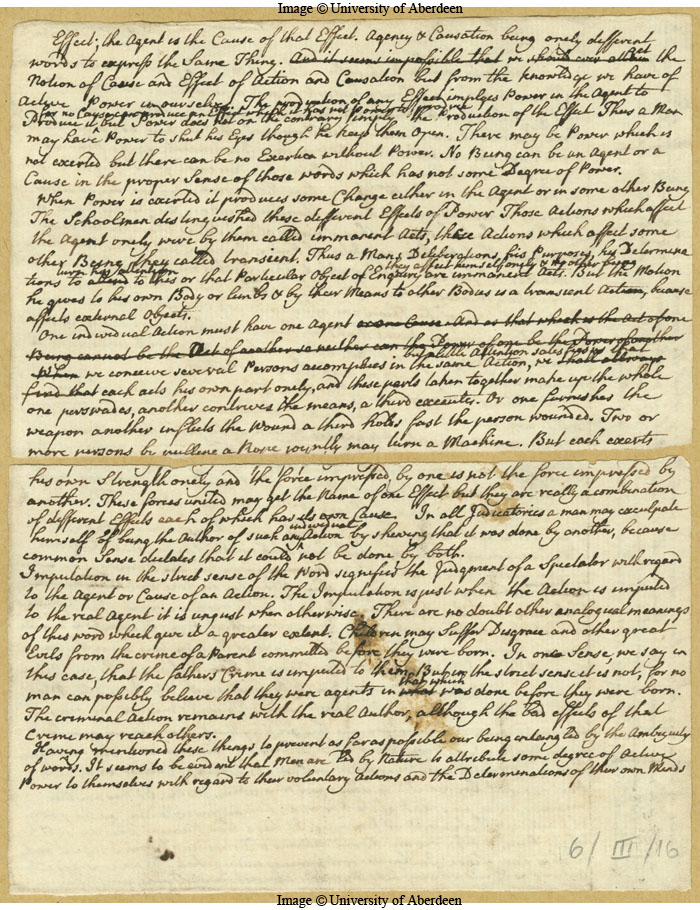 Image © University of Aberdeen
Effect; the Agent is the Cause of that Effect. Agency & Causation being onely different
words to express the Same Thing. And it seems impossible that we should ever attain the
get
Notion of Cause and Effect of Action and Causation but from the knowledge we have of
Active Power in ourselves. The production of any Effect implyes Power in the Agent to
for no Cause can produce an Effect which it has not Power to produce
Produce it but Power does not on the contrary imply the Production of the Effect Thus a Man
may have Power to shut his Eyes though he keep them open. There may be Power which is
not exerted but there can be no Exertion without Power. No Being can be an Agent or a
Cause in the proper Sense of those words which has not some Degree of Power.
When Power is exerted it produces some Change either in the Agent or in some other Being
The Schoolmen distinguished these different Effects of Power Those Actions which affect
the Agent onely were by them called immanent Acts, those Actions which affect some
other Being they called transient. Thus a Mans Deliberations, his Purposes, his Determina
turn his attention
they affect himself onely & no other being
tions to attend to this or that Particular Object of Enquiry are immanent Acts. But the Motion
he gives to his own Body or limbs & by their Means to other Bodies is a transient Action, because
affects external Objects.
One individual Action must have one Agent or one Cause. And as that which is the Act of one
Being cannot be the Act of another so neither can the Power of one be the Power of another
by a little Attention satisfies us that
When we conceive several Persons accomplices in the same Action, we shall always
find that each acts his own part onely, and these parts taken together make up the whole
one perswades, another contrives the means, a third executes. Or one furnishes the
weapon another inflicts the Wound a third holds fast the person wounded. Two or
more persons by pulling a Rope joyntly may turn a Machine. But each exerts
his own Strength onely and the force impressed, by one is not the force impressed by
another. These forces united may get the Name of one Effect but they are really a combination
of different Effects each of which has its own Cause. In all Judicatories a man may exculpate
individual
himself of being the Author of such an Action by shewing that it was done by another, because
common Sense dictates that it could not be done by both.
Imputation in the strict sense of the Word signifies the Judgment of a Spectator with regard
to the Agent or Cause of an Action. The Imputation is just when the Action is imputed
to the real Agent it is unjust when otherwise. There are no doubt other analogical meanings
of this word which give it a greater extent. Children may Suffer Disgrace and other great
Evils from the crime of a Parent committed before they were born. In one Sense, we say in
this case, that the fathers Crime is imputed to them. But in the strict sense it is not, for no
that which
man can possibly believe that they were agents in what was done before they were born.
The criminal Action remains with the real Author, although the bad effects of that
Crime may reach others.
Having mentioned these things to prevent as far as possible our being entangled by the Ambiguity
of words. It seems to be evident that Men are led by Nature to attribute some degree of Active
Power to themselves with regard to their voluntary Actions and the Determinations of their own Minds
6/III/16
Image © University of Aberdeen